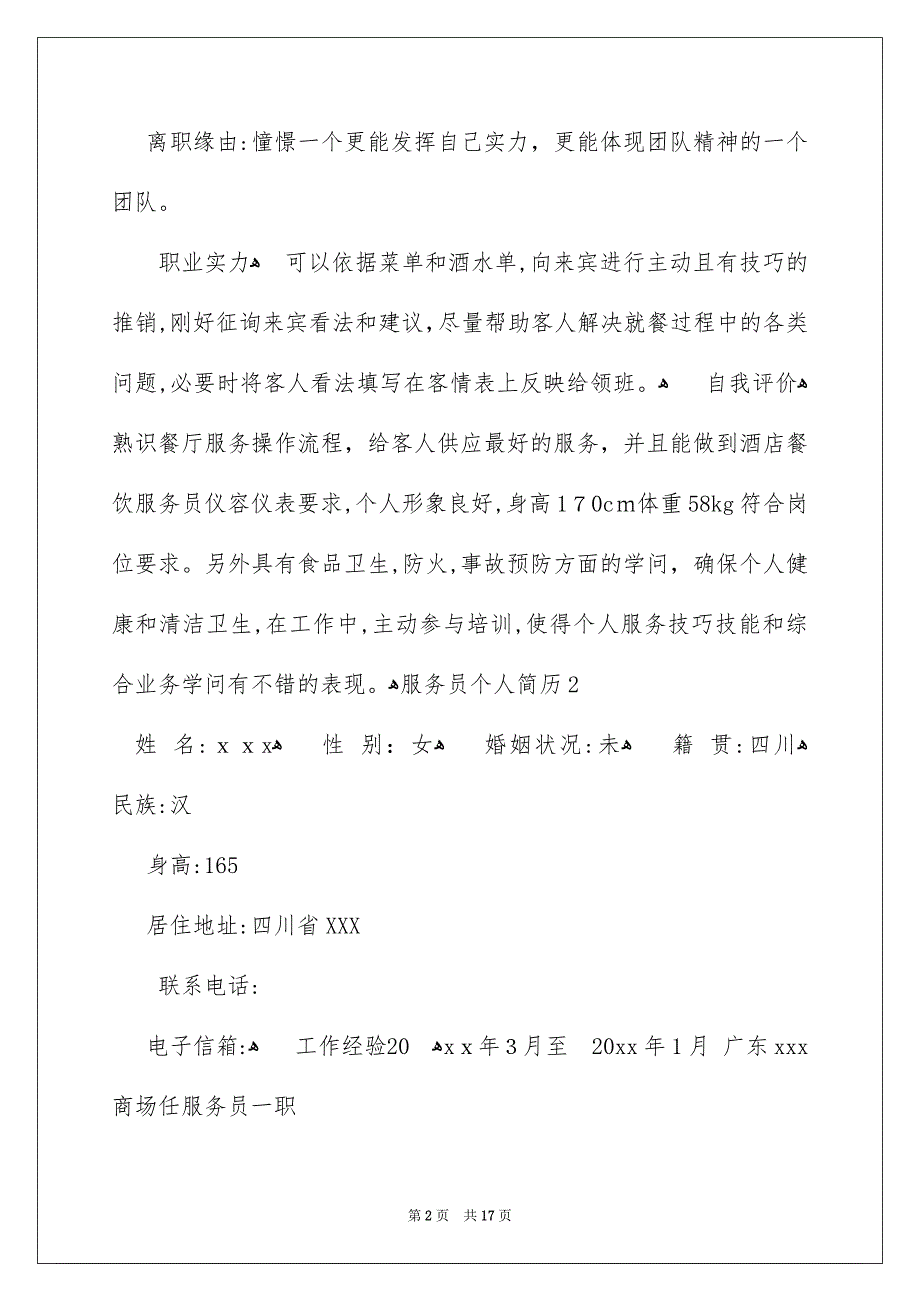 离职缘由:憧憬一个更能发挥自己实力，更能体现团队精神的一个
团队。
职业实力ﻫ 可以依据菜单和酒水单,向来宾进行主动且有技巧的
推销,刚好征询来宾看法和建议，尽量帮助客人解决就餐过程中的各类
问题,必要时将客人看法填写在客情表上反映给领班。ﻫ 自我评价ﻫ
熟识餐厅服务操作流程，给客人供应最好的服务，并且能做到酒店餐
饮服务员仪容仪表要求,个人形象良好,身高１７0cｍ体重58kg符合岗
位要求。另外具有食品卫生,防火,事故预防方面的学问，确保个人健
康和清洁卫生,在工作中,主动参与培训,使得个人服务技巧技能和综
合业务学问有不错的表现。ﻫ服务员个人简历２
姓 名:ｘｘxﻫ 性 别：女ﻫ 婚姻状况:未ﻫ 籍 贯:四川ﻫ
民族:汉
身高:165
居住地址:四川省XXX
联系电话:
电子信箱:ﻫ 工作经验20 ﻫxｘ年３月至 20xx年１月 广东xxx
商场任服务员一职
第2页 共17页